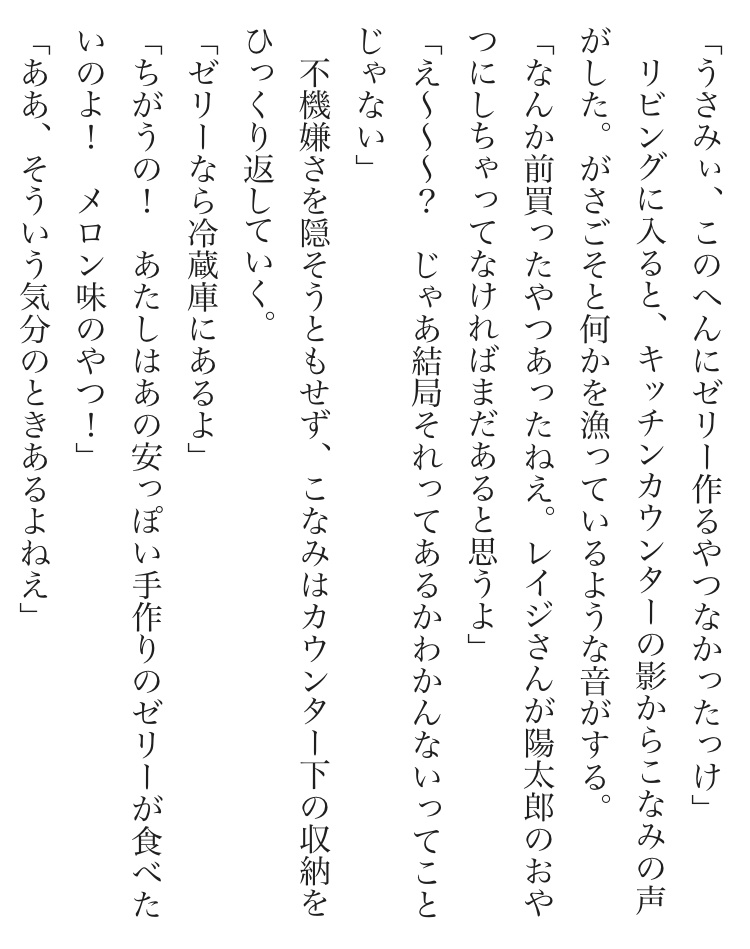 「うさみぃ、このへんにゼリー作るやつなかったっけ」
　リビングに入ると、キッチンカウンターの影からこなみの声
がした。がさごそと何かを漁っているような音がする。
「なんか前買ったやつあったねえ。レイジさんが陽太郎のおや
つにしちゃってなければまだあると思うよ」
「え～～～？　じゃあ結局それってあるかわかんないってこと
じゃない」
　不機嫌さを隠そうともせず、こなみはカウンター下の収納を
ひっくり返していく。
「ゼリーなら冷蔵庫にあるよ」
「ちがうの！　あたしはあの安っぽい手作りのゼリーが食べた
いのよ！　メロン味のやつ！」
「ああ、そういう気分のときあるよねえ」